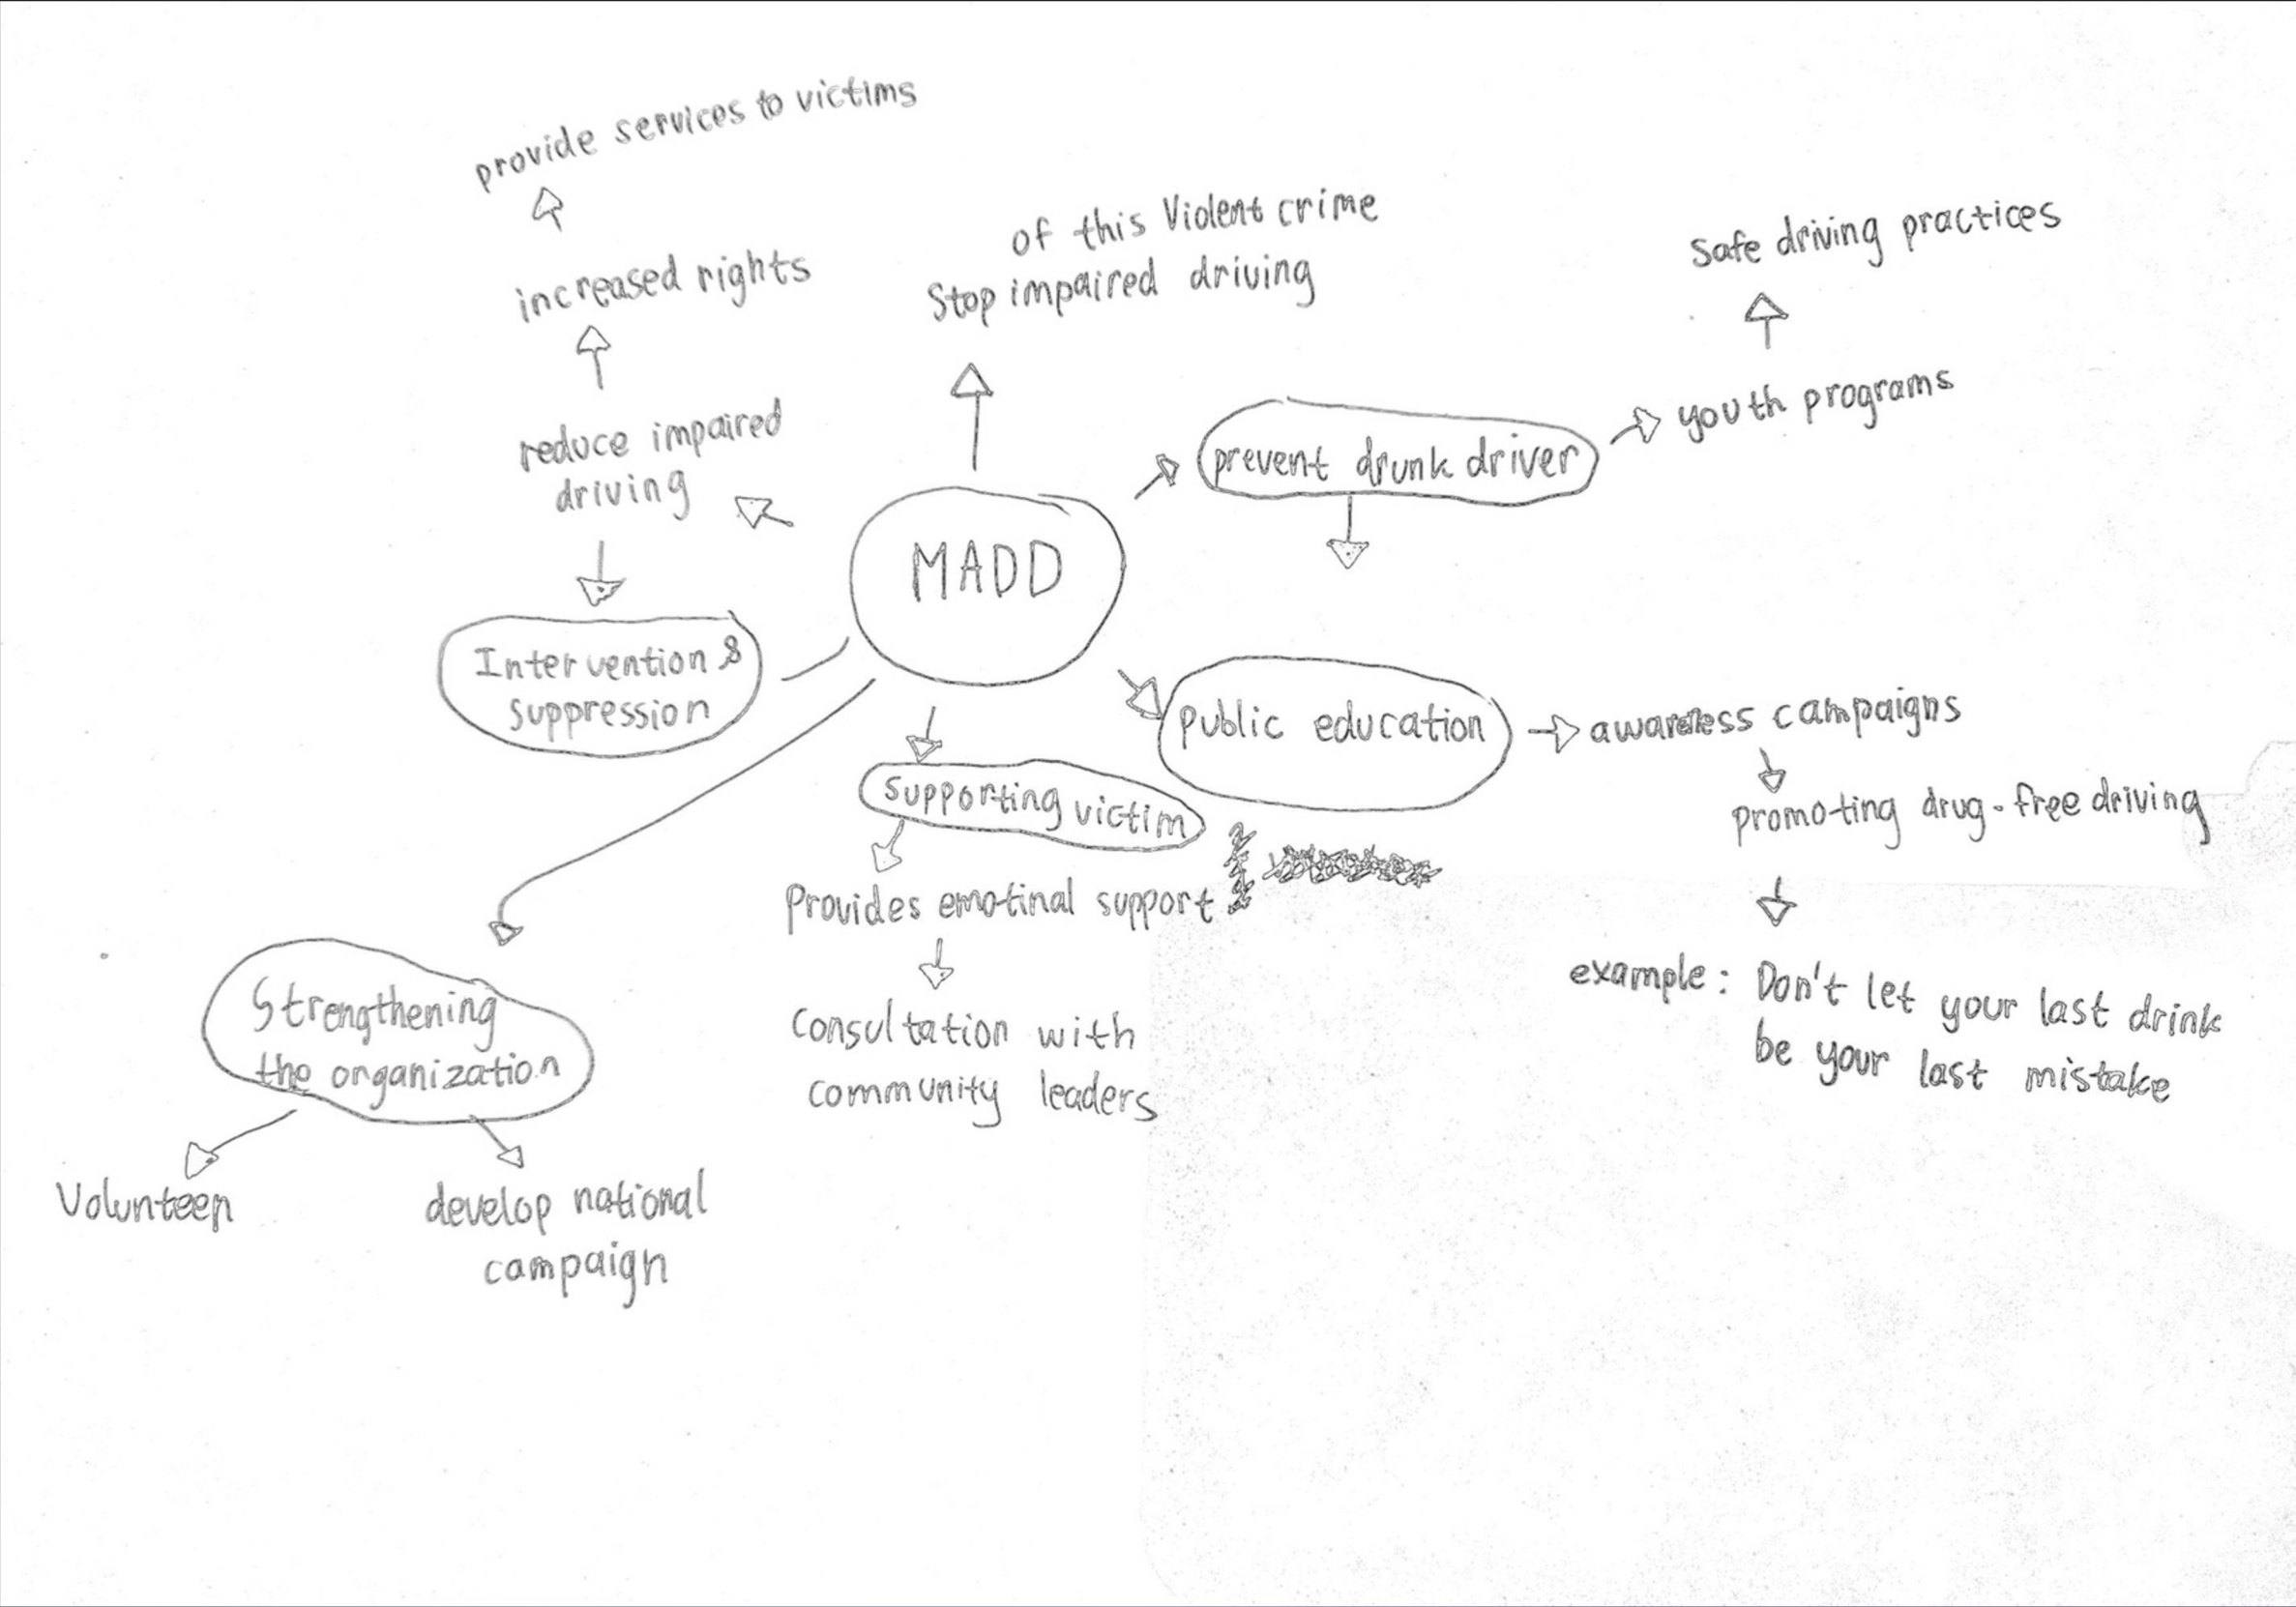 provide services to victims
increased rights
reduce impaired
driving
of this Violent crime
Stop impaired driving
Safe driving practices
youth programs
prevent drunk driver
MADD
Intervention &
suppression
public education
awareness campaigns
promoting drug-free driving
example: Don't let your last drink
be your last mistake
supporting victim
Provides emotinal support
Consultation with
community leaders
Strengthening
the organization
Volunteer
develop national
campaign